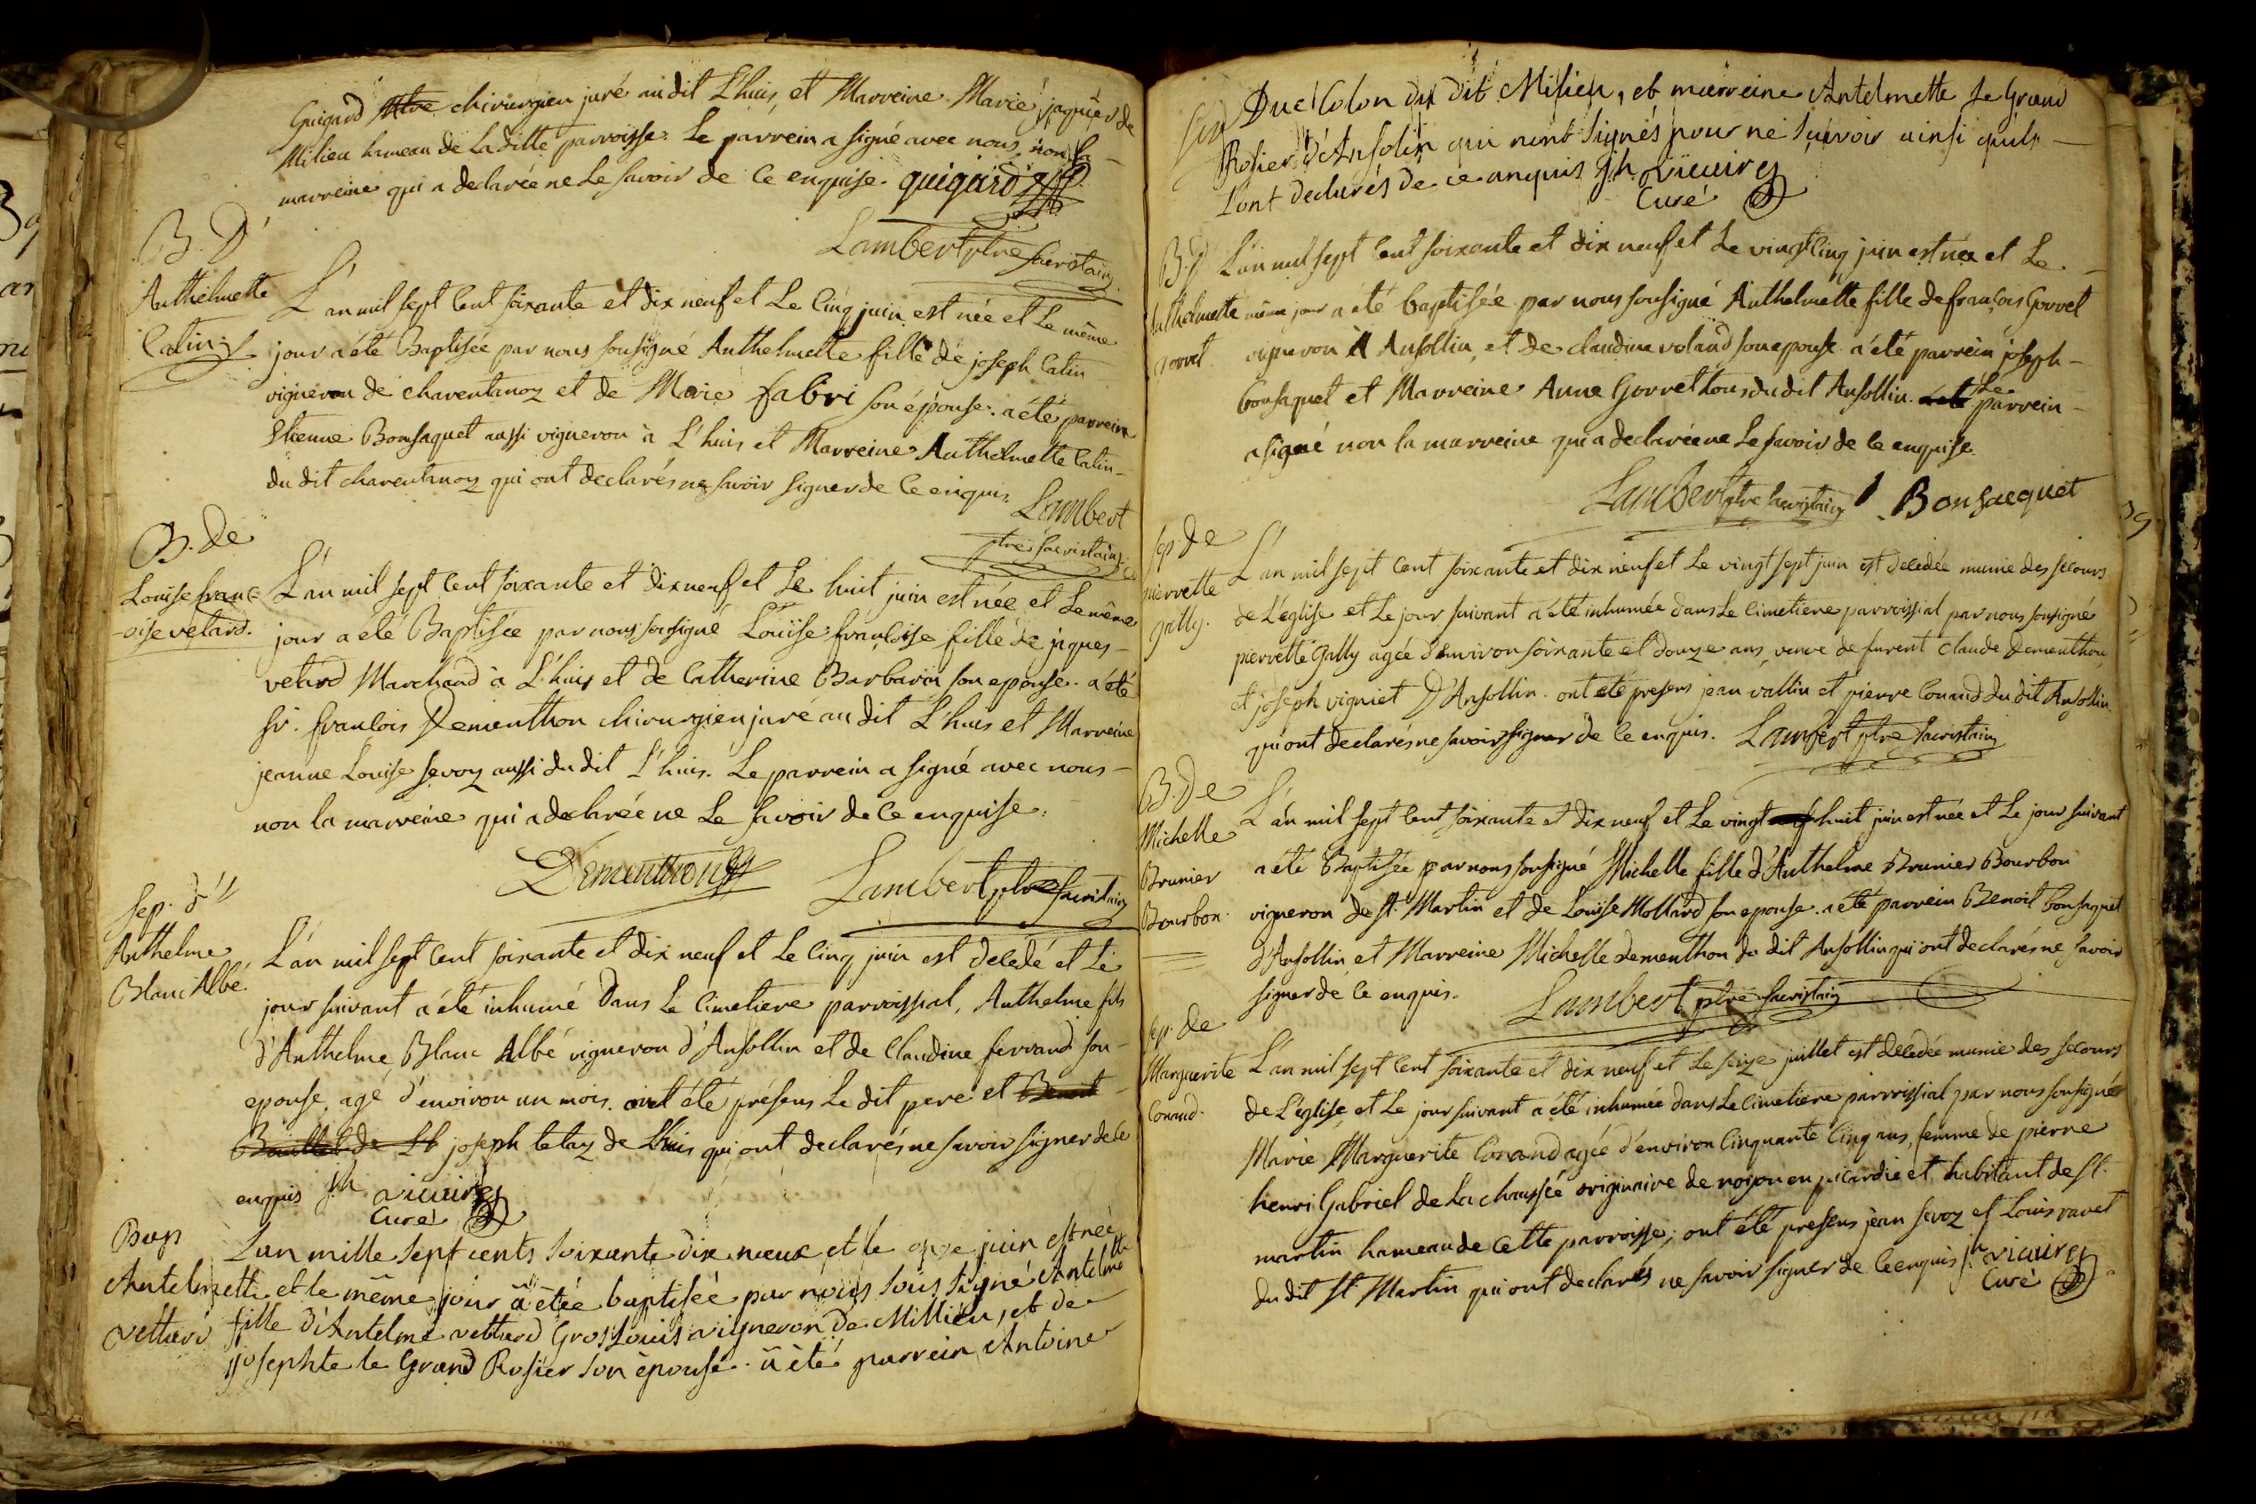 Guigard chirurgien juré au dit L'huis, et Marreine Marie jaquier de
Milieu hameau de Laditte parroisse. Le parrein a signé avec nous, non la
marreine qui a declarée ne Le savoir de ce enquise. guigard
Lambert ptre sacristain
B. D'
Anthelmette
Catin
L'an mil sept cent soixante et dix neuf et Le cinq juin est née et Le même
jour a été Baptisée par nous sousigné Anthelmette fille de joseph Catin
vigneron de charentanoz et de Marie fabri son épouse. a été parrein
Etienne Bonsaquet aussi vigneron à L'huis et Marreine Anthelmette Catin
du dit charentanoz qui ont declarés ne savoir signer de ce enquis. Lambert
ptre sacristain
B. de
Louise franc
-oise vetard.
L'an mil sept cent soixante et dix neuf et Le huit juin est née et Le même
jour a été Baptisée par nous sousigné Louise françoise fille de jaques
vetard Marchand à L'huis et de Catherine Barbarin son epouse. a été
sr. francois Dementhon chirurgien juré au dit L'huis et Marreine
jeanne Louise sevoz aussi du dit L'huis. Le parrein a signé avec nous
non la marreine qui a declarée ne Le savoir de ce enquise.
Dementhon Lambert ptre sacristain
Sep. d'
Anthelme
Blanc Albé.
L'an mil sept cent soixante et dix neuf et Le cinq juin est decedé et Le
jour suivant a été inhumé dans Le cimetiere parroissial, Anthelme fils
d'Anthelme Blanc Albé vigneron d'Ansollin et de Claudine ferrand son
epouse, agé d'environ un mois. ont été présens Le dit pere et Benoit
joseph tetaz de L'huis qui ont declarés ne savoir signer de ce
enquis jh vicaire
Curé
Bap
Antelmette
vettard
Lan mille sept cents soixante dix neuf et le onze juin est née
et le même jour a étée baptisée par nous sous signé Antelmette
fille d'Antelme vettard Gros Louis vigneron de Millieu, et de
josephte le Grand Rosier son épouse. a été parrein Antoine
Duc Colon du dit Milieu, et marreine Antelmette le Grand
Rosier d'Ansolin qui n'ont signés pour ne scavoir ainsi quils
l'ont declarés de ce anquis jh vicaire
Curé
B. d'
Anthelmette
gorret
L'an mil sept cent soixante et dix neuf et Le vingt cinq juin est née et Le
même jour a été baptisée par nous sousigné Anthelmette fille de françois Gorret
vigneron à Ansollin, et de claudine voland son epouse. a été parrein joseph
bonsaquet et Marreine Anne Gorret tous du dit Ansollin. Le parrein
a signé non la marreine qui a declarée ne Le savoir de ce enquise.
Lambert ptre sacristain Bonsacquet
sep. de
pierrette
gally.
L'an mil sept cent soixante et dix neuf et Le vingt sept juin est decedée munie des secours
de L'église et Le jour suivant a été inhumée dans Le Cimetiere parroissial par nous sousigné
pierrette gally agée d'environ soixante et douze ans, veuve de furent claude Dementhon
et joseph vigniet D'Ansollin. ont été presens jean vallin et pierre Conand du dit Ansollin
qui ont declarés ne savoir signer de ce enquis. Lambert ptre sacristain
B. De
Michelle
Brunier
Bourbon.
L'an mil sept cent soixante et dix neuf et Le vingt huit juin est née et Le jour suivant
a été Baptisée par nous sousigné Michelle fille d'Anthelme Brunier Bourbon
vigneron de st. Martin et de Louise Mollard son epouse. a été parrein Benoit bonsaquet
d'Ansollin et Marreine Michelle dementhon du dit Ansollin qui ont declarés ne savoir
signer de ce enquis. Lambert ptre sacristain
Sep. de
Marguerite
Conand.
L'an mil sept cent soixante et dix neuf et Le seize juillet est decedée munie des secours
de L'église, et Le jour suivant a été inhumée dans Le cimetiere parroissial par nous sousigné
Marie Marguerite Conand agée d'environ cinquante cinq ans, femme de pierre
henri Gabriel de La chaussée originaire de noyon en picardie et habitant de st.
martin hameau de cette parroisse; ont été presens jean sevoz et Louis ravet
du dit st Martin qui ont declarés ne savoir signer de ce enquis jh vicaire
Curé